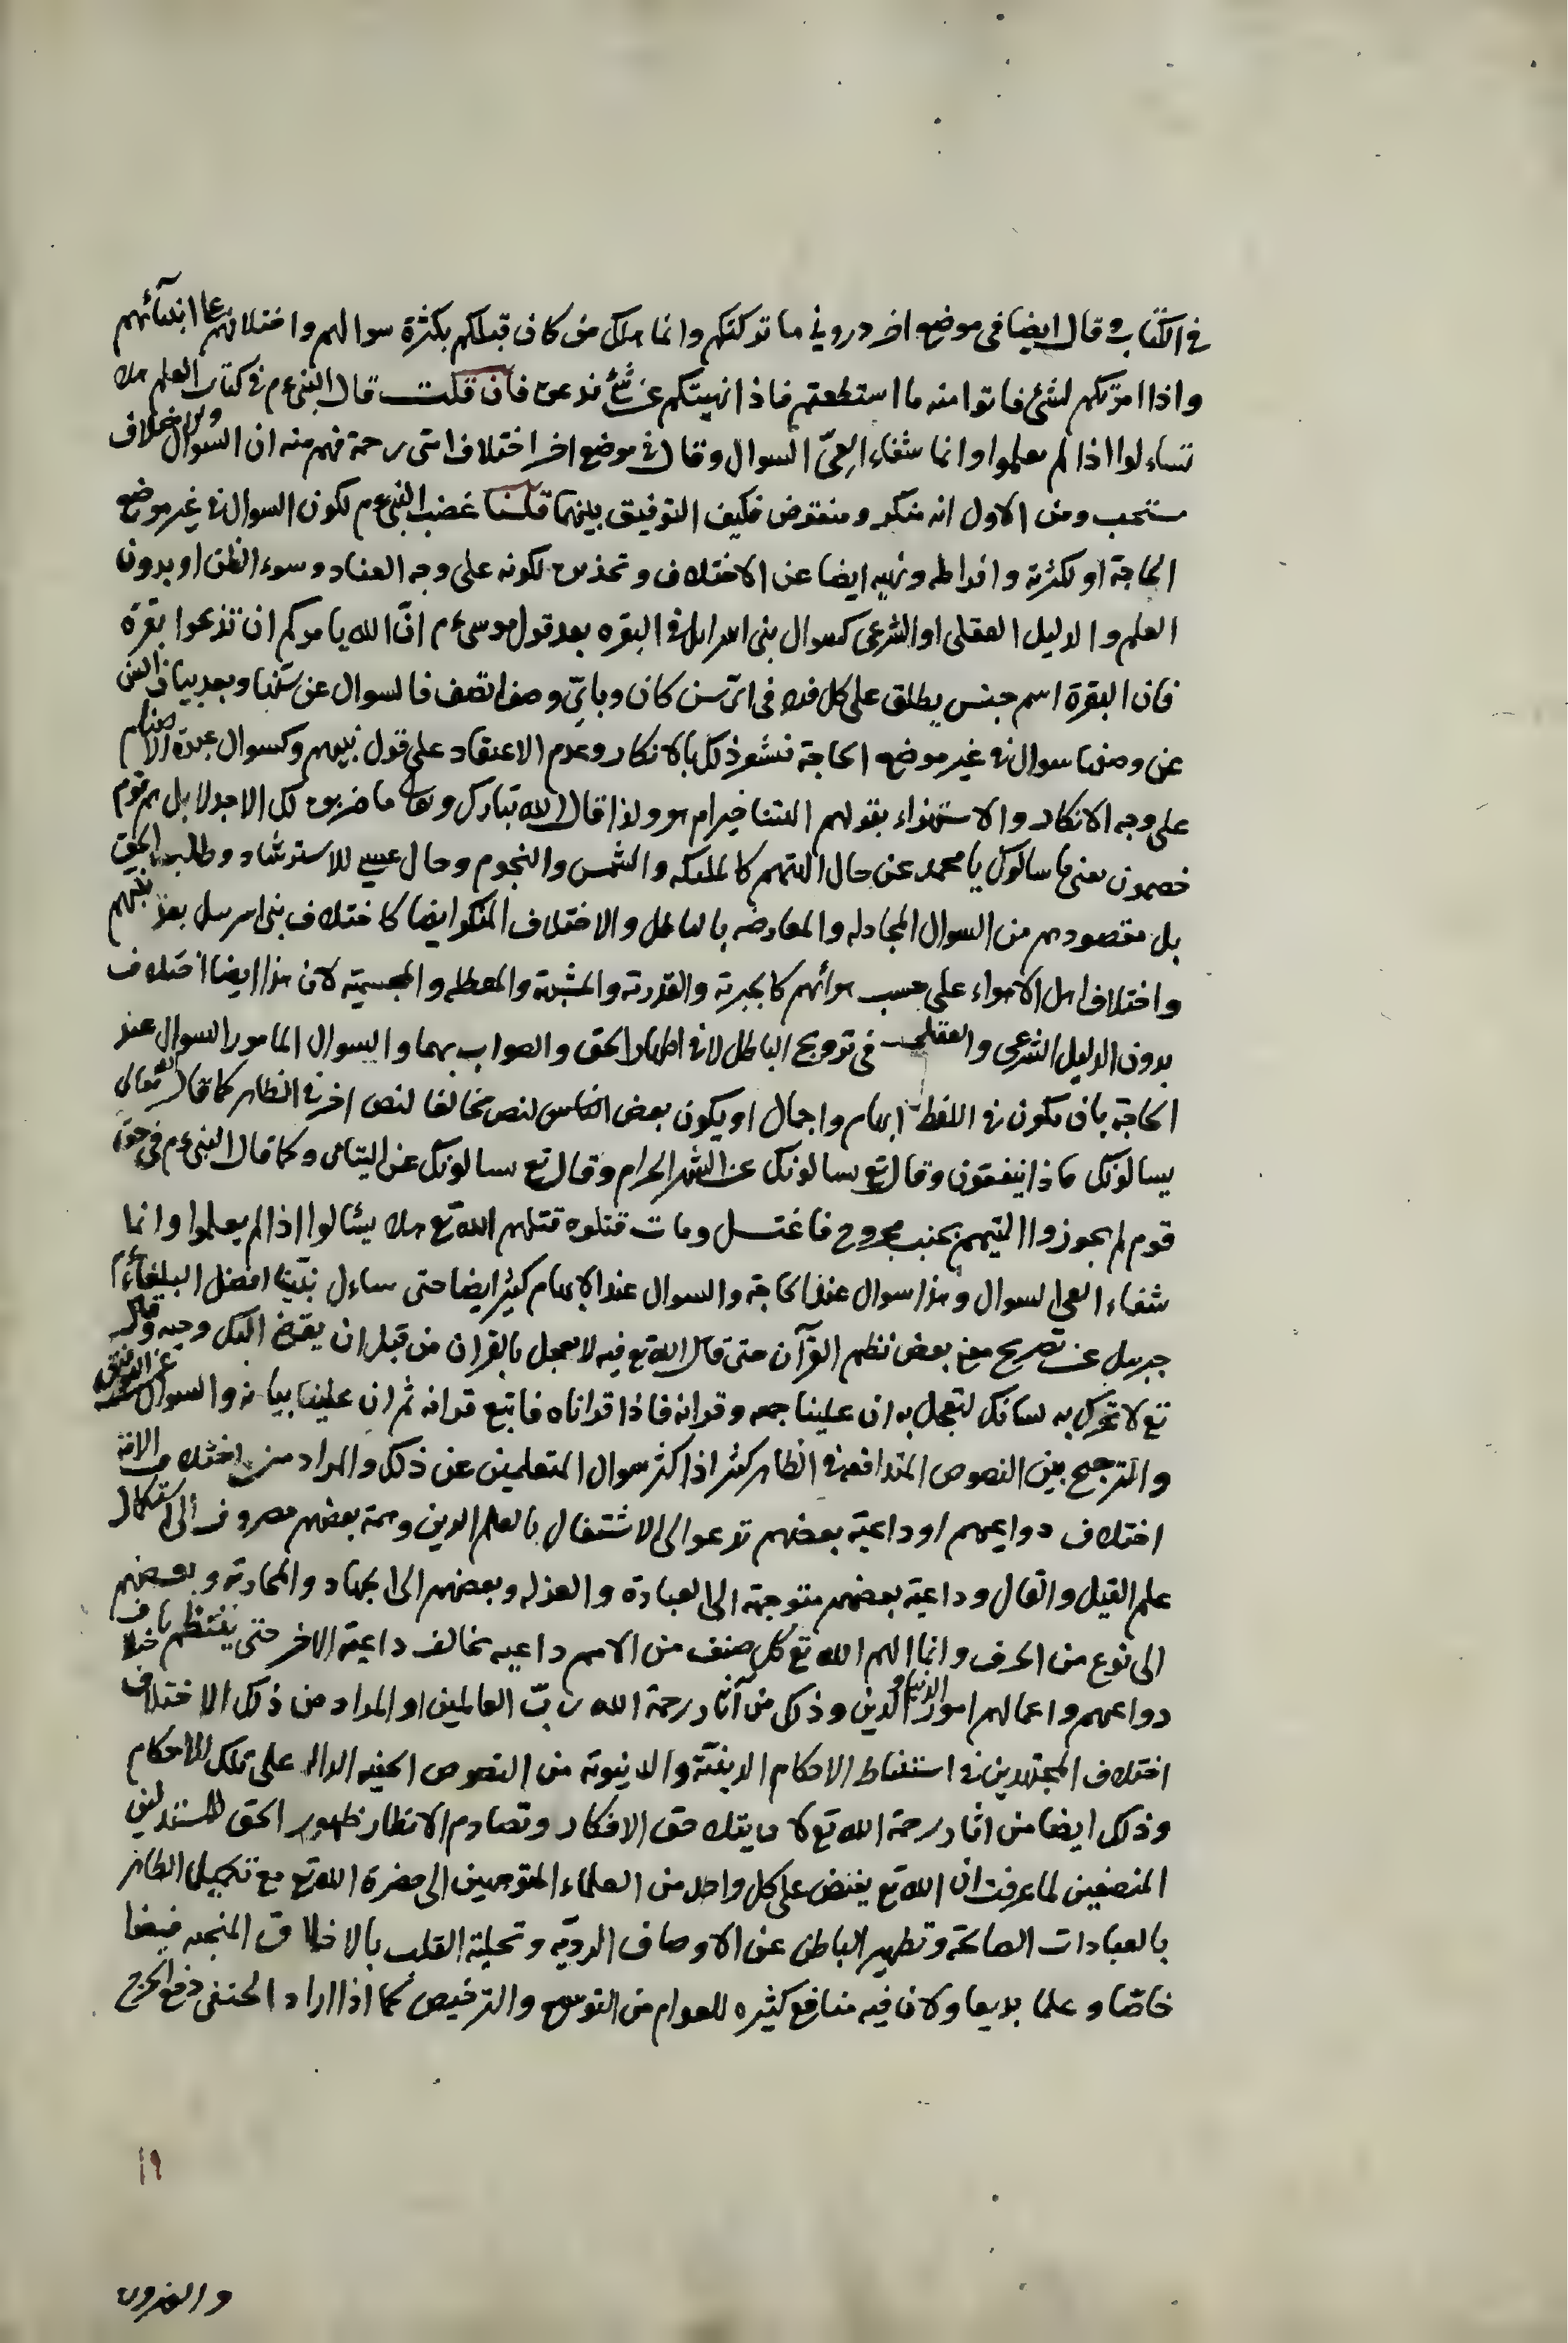 في الكتاب وقال ايضا في موضع اخر دروني ما تركتكم وانما هلك من كان قبلكم بكثرة سوالهم واختلافهم على انبيائهم
واذا امرتكم بشئ فاتوا منه ما استطعتم فاذا نهيتكم عن شئ فدعوه فان قلت قال النبي ءم في كتاب العلم هلا
تساءلوا اذا لم يعلموا وانما شفاء العيّ السوال وقال في موضع اخر اختلاف امتى رحمة فهم منه ان السوال والاختلاف
مستحب ومن الاول انه منكر ومنقوض فكيف التوفيق بينهما قلنا غضب النبي ءم لكون السوال في غير موضع
الحاجة او لكثرته وافراطه ونهيه ايضا عن الاختلاف وتحذيره لكونه على وجه العناد وسوء الظن او بدون
العلم والدليل العقلى او الشرعى كسوال بنى اسرائل في البقره بعد قول موسىءم انّ الله يامركم ان تذبحوا بقرة
فان البقرة اسم جنس يطلق على كل فرد في اىّ سن كان وباىّ وصف اتصف فالسوال عن سنها وبعد بيان السن
عن وصفها سوال في غير موضع الحاجة فنشعر ذلك بالانكار وعدم الاعتقاد على قول نبيهم وكسوال عبدة الاصنام
على وجه الانكار والاستهزاء بقولهم الهتنا خيرام هو ولذا قال الله تبارك وتعالى ما ضربوه لك الا جدلا بل هم قوم
خصمون يعنى ما سالوك يا محمد عن حال الهتهم كالملئكه والشمس والنجوم وحال عيسى للاسترشاد وطلب الحق
بل مقصودهم من السوال المجادله والمعارضه بالباطل والاختلاف المنكر ايضا كاختلاف بنى اسرسل بعد نبيهم
واختلاف اهل الاهواء على حسب هوائهم كالجبرية والقدرية والمشبهة والمعطله والمجسمية لان هذا ايضا اختلاف
بدون الدليل الشرعى والعقلى في ترويج الباطل لا في اظهار الحق والصواب بهما والسوال المامور السوال عند
الحاجة بان يكون في اللفظ ابهام واجمال او يكون بعض الناس لنص مخالفا لنص اخر في الظاهر كما قال الله تعالى
يسالونك ماذا ينفقون وقال تع يسالونك عن الشهر الحرام وقال تع يسالونك عن اليتامى وكما قال النبي ءم في حق
قوم لم يجوزوا التيمم بجنب مجروح فاغتسل ومات قتلوه قتلهم الله تع هلا يسئالوا اذا لم يعلموا وانما
شفاء العى السوال وهذا سوال عند الحاجة والسوال عند الابهام كثير ايضا حتى ساءل نبيّنا افضل البلغاء ءم
جبريل عن تصريح معنى بعض نظم القرآن حتى قال الله تع فيه لا تعجل بالقران من قبل ان يقضى اليك وحيه وقال
تع لا تحرك به لسانك لتعجل به ان علينا جمعه وقرانه فاذا قراناه فاتبع قرانه ثم ان علينا بيانه والسوال عن التوفيق
والترجيح بين النصوص المتدافعه في الظاهر كثير اذا كثر سوال المتعلمين عن ذلك والمراد من اختلاف الامة
اختلاف دواعيهم او داعية بعضهم تدعوا الى الاشتغال بالعلم الدين وهمة بعضهم مصروفه الى استكمال
علم القيل والقال وداعية بعضهم متوجهة الى العبادة والعزله وبعضهم الى الجهاد والمحاربة وبعضهم
الى نوع من الحرف وانما الهم الله تع كل صنف من الامم داعيه تخالف داعية الاخر حتى ينتظم باختلاف
دواعيهم واعمالهم امور الدنيا والدين وذلك من آثار رحمة الله ربّ العالمين او المراد من ذلك الاختلاف
اختلاف المجتهدين في استنباط الاحكام الدينية والدنيوية من النصوص الخفيه الداله على تلك الاحكام
وذلك ايضا من اثار رحمة الله تع لان بتلاحق الافكار وتصادم الانظار ظهور الحق للمستدلين
المنصفين لما عرفت ان الله تع يفيض على كل واحد من العلماء المتوجهين الى حضرة الله تع مع تكميل الظاهر
بالعبادات الصالحة وتطهير الباطن عن الاوصاف الرديّه وتحلية القلب بالاخلاق المنجيه فيضا
خاصّا وعلما بديعا ولان فيه منافع كثيره للعوام من التوسع والترخيص كما اذا اراد الحنفى دفع الحرج
١٩
والضرورة